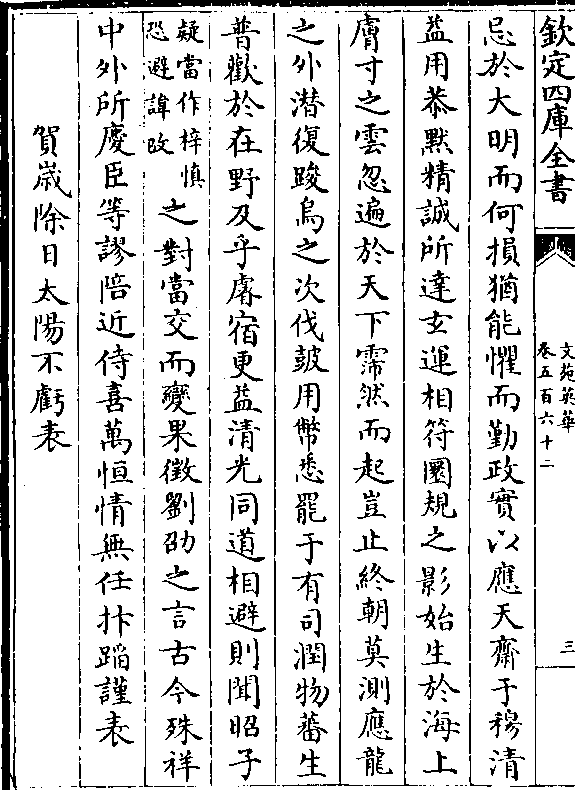 欽定四庫全書
文苑英華
卷五百六十二
三
忌於大明而何損猶能懼而勤政實以應天齋于穆清
益用恭默精誠所達玄運相符圜規之影始生於海上
膚寸之雲忽遍於天下霈然而起豈止終朝莫測應龍
之外潛復踆烏之次伐鼓用幣悉罷于有司潤物蕃生
普歡於在野及乎處宿更益清光同道相避則聞昭子
疑當作梓慎
恐避諱改
之對當交而變果徵劉劭之言古今殊祥
中外所慶臣等謬陪近侍喜萬恒情無任抃蹈謹表
賀歲除日太陽不虧表